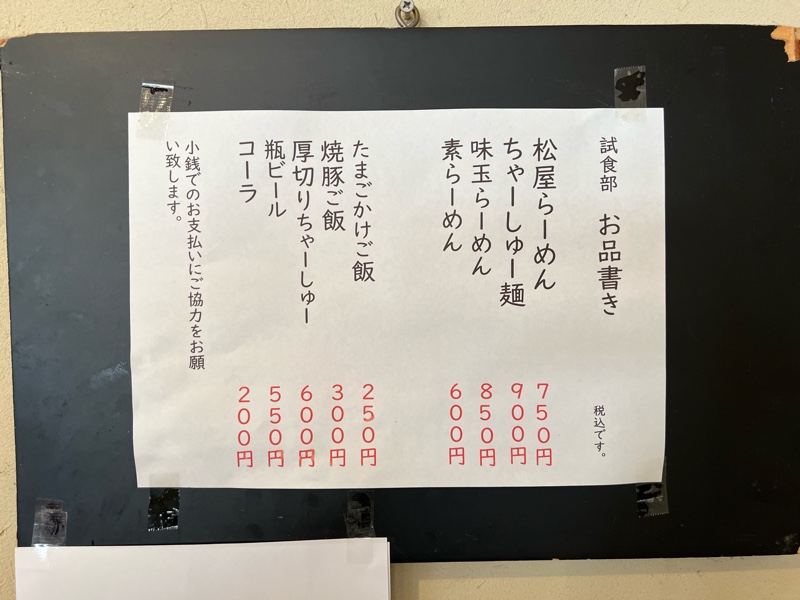 試食部 お品書き 税込です。
松屋らーめん 750円
ちゃーしゅー麺 900円
味玉らーめん 850円
素らーめん 600円
たまごかけご飯 250円
焼豚ご飯 300円
厚切りちゃーしゅー 600円
瓶ビール 550円
コーラ 200円
小銭でのお支払いにご協力をお願
い致します。